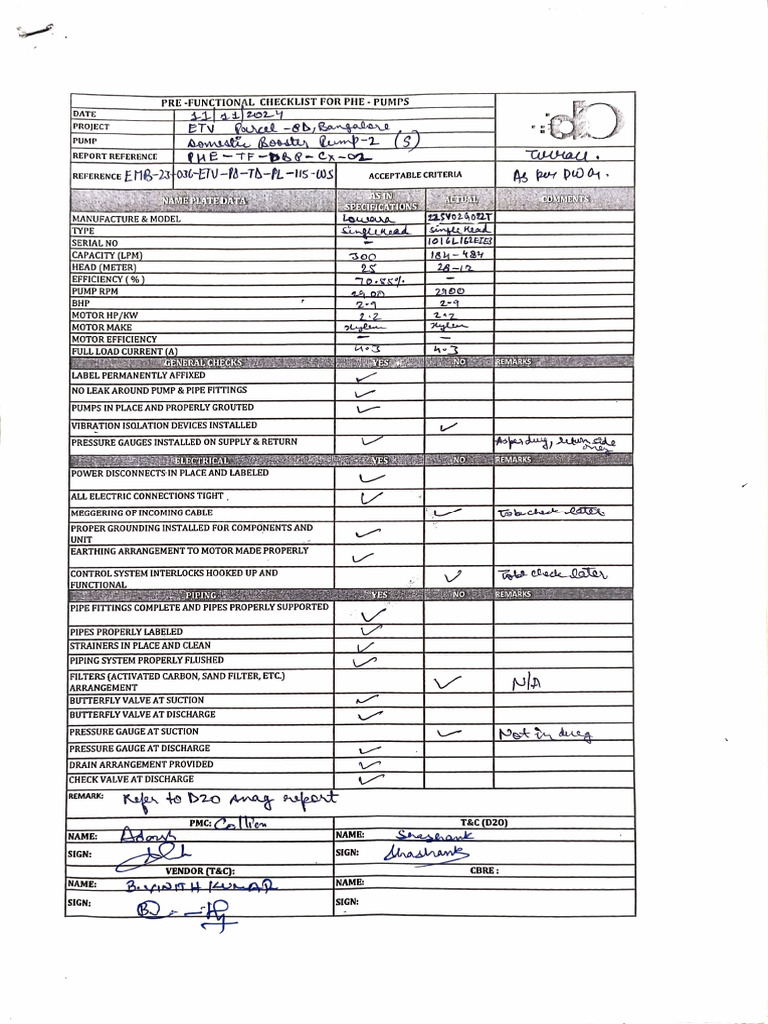 PRE -FUNCTIONAL CHECKLIST FOR PHE - PUMPS
DATE 11/11/2024
PROJECT ETV Parcel -8D, Bangalore
PUMP Domestic Booster Pump-2 (S)
REPORT REFERENCE PHE-TF-DBP-CX-02
REFERENCE EMB-23-036-ETV-P8-TD-PL-115-WS ACCEPTABLE CRITERIA As per DWG.
NAME PLATE DATA AS IN SPECIFICATIONS ACTUAL COMMENTS
MANUFACTURE & MODEL Lowara 22SV02G022T
TYPE Single Head Single Head
SERIAL NO –
CAPACITY (LPM) 300 184-484
HEAD (METER) 25 28-12
EFFICIENCY ( % ) 70.55% –
PUMP RPM 2900 2900
BHP 2.9 2.9
MOTOR HP/KW 2.2 2.2
MOTOR MAKE Xylem Xylem
MOTOR EFFICIENCY – –
FULL LOAD CURRENT (A) 4.3 4.3
GENERAL CHECKS YES NO REMARKS
LABEL PERMANENTLY AFFIXED ✓
NO LEAK AROUND PUMP & PIPE FITTINGS ✓
PUMPS IN PLACE AND PROPERLY GROUTED ✓
VIBRATION ISOLATION DEVICES INSTALLED ✓
PRESSURE GAUGES INSTALLED ON SUPPLY & RETURN ✓ As per dwg, return side
ELECTRICAL YES NO REMARKS
POWER DISCONNECTS IN PLACE AND LABELED ✓
ALL ELECTRIC CONNECTIONS TIGHT ✓
MEGGERING OF INCOMING CABLE ✓ To be check later
PROPER GROUNDING INSTALLED FOR COMPONENTS AND
UNIT ✓
EARTHING ARRANGEMENT TO MOTOR MADE PROPERLY ✓
CONTROL SYSTEM INTERLOCKS HOOKED UP AND
FUNCTIONAL ✓ To be check later
PIPING YES NO REMARKS
PIPE FITTINGS COMPLETE AND PIPES PROPERLY SUPPORTED ✓
PIPES PROPERLY LABELED ✓
STRAINERS IN PLACE AND CLEAN ✓
PIPING SYSTEM PROPERLY FLUSHED ✓
FILTERS (ACTIVATED CARBON, SAND FILTER, ETC.)
ARRANGEMENT ✓ N/A
BUTTERFLY VALVE AT SUCTION ✓
BUTTERFLY VALVE AT DISCHARGE ✓
PRESSURE GAUGE AT SUCTION ✓ Not in dwg
PRESSURE GAUGE AT DISCHARGE ✓
DRAIN ARRANGEMENT PROVIDED ✓
CHECK VALVE AT DISCHARGE ✓
REMARK: Refer to D2O snag report
PMC: Colliers T&C (D2O)
NAME: Adarsh NAME: Shashank
SIGN: SIGN: Shashank
VENDOR (T&C): CBRE :
NAME: B.VINITH KUMAR NAME:
SIGN: SIGN: